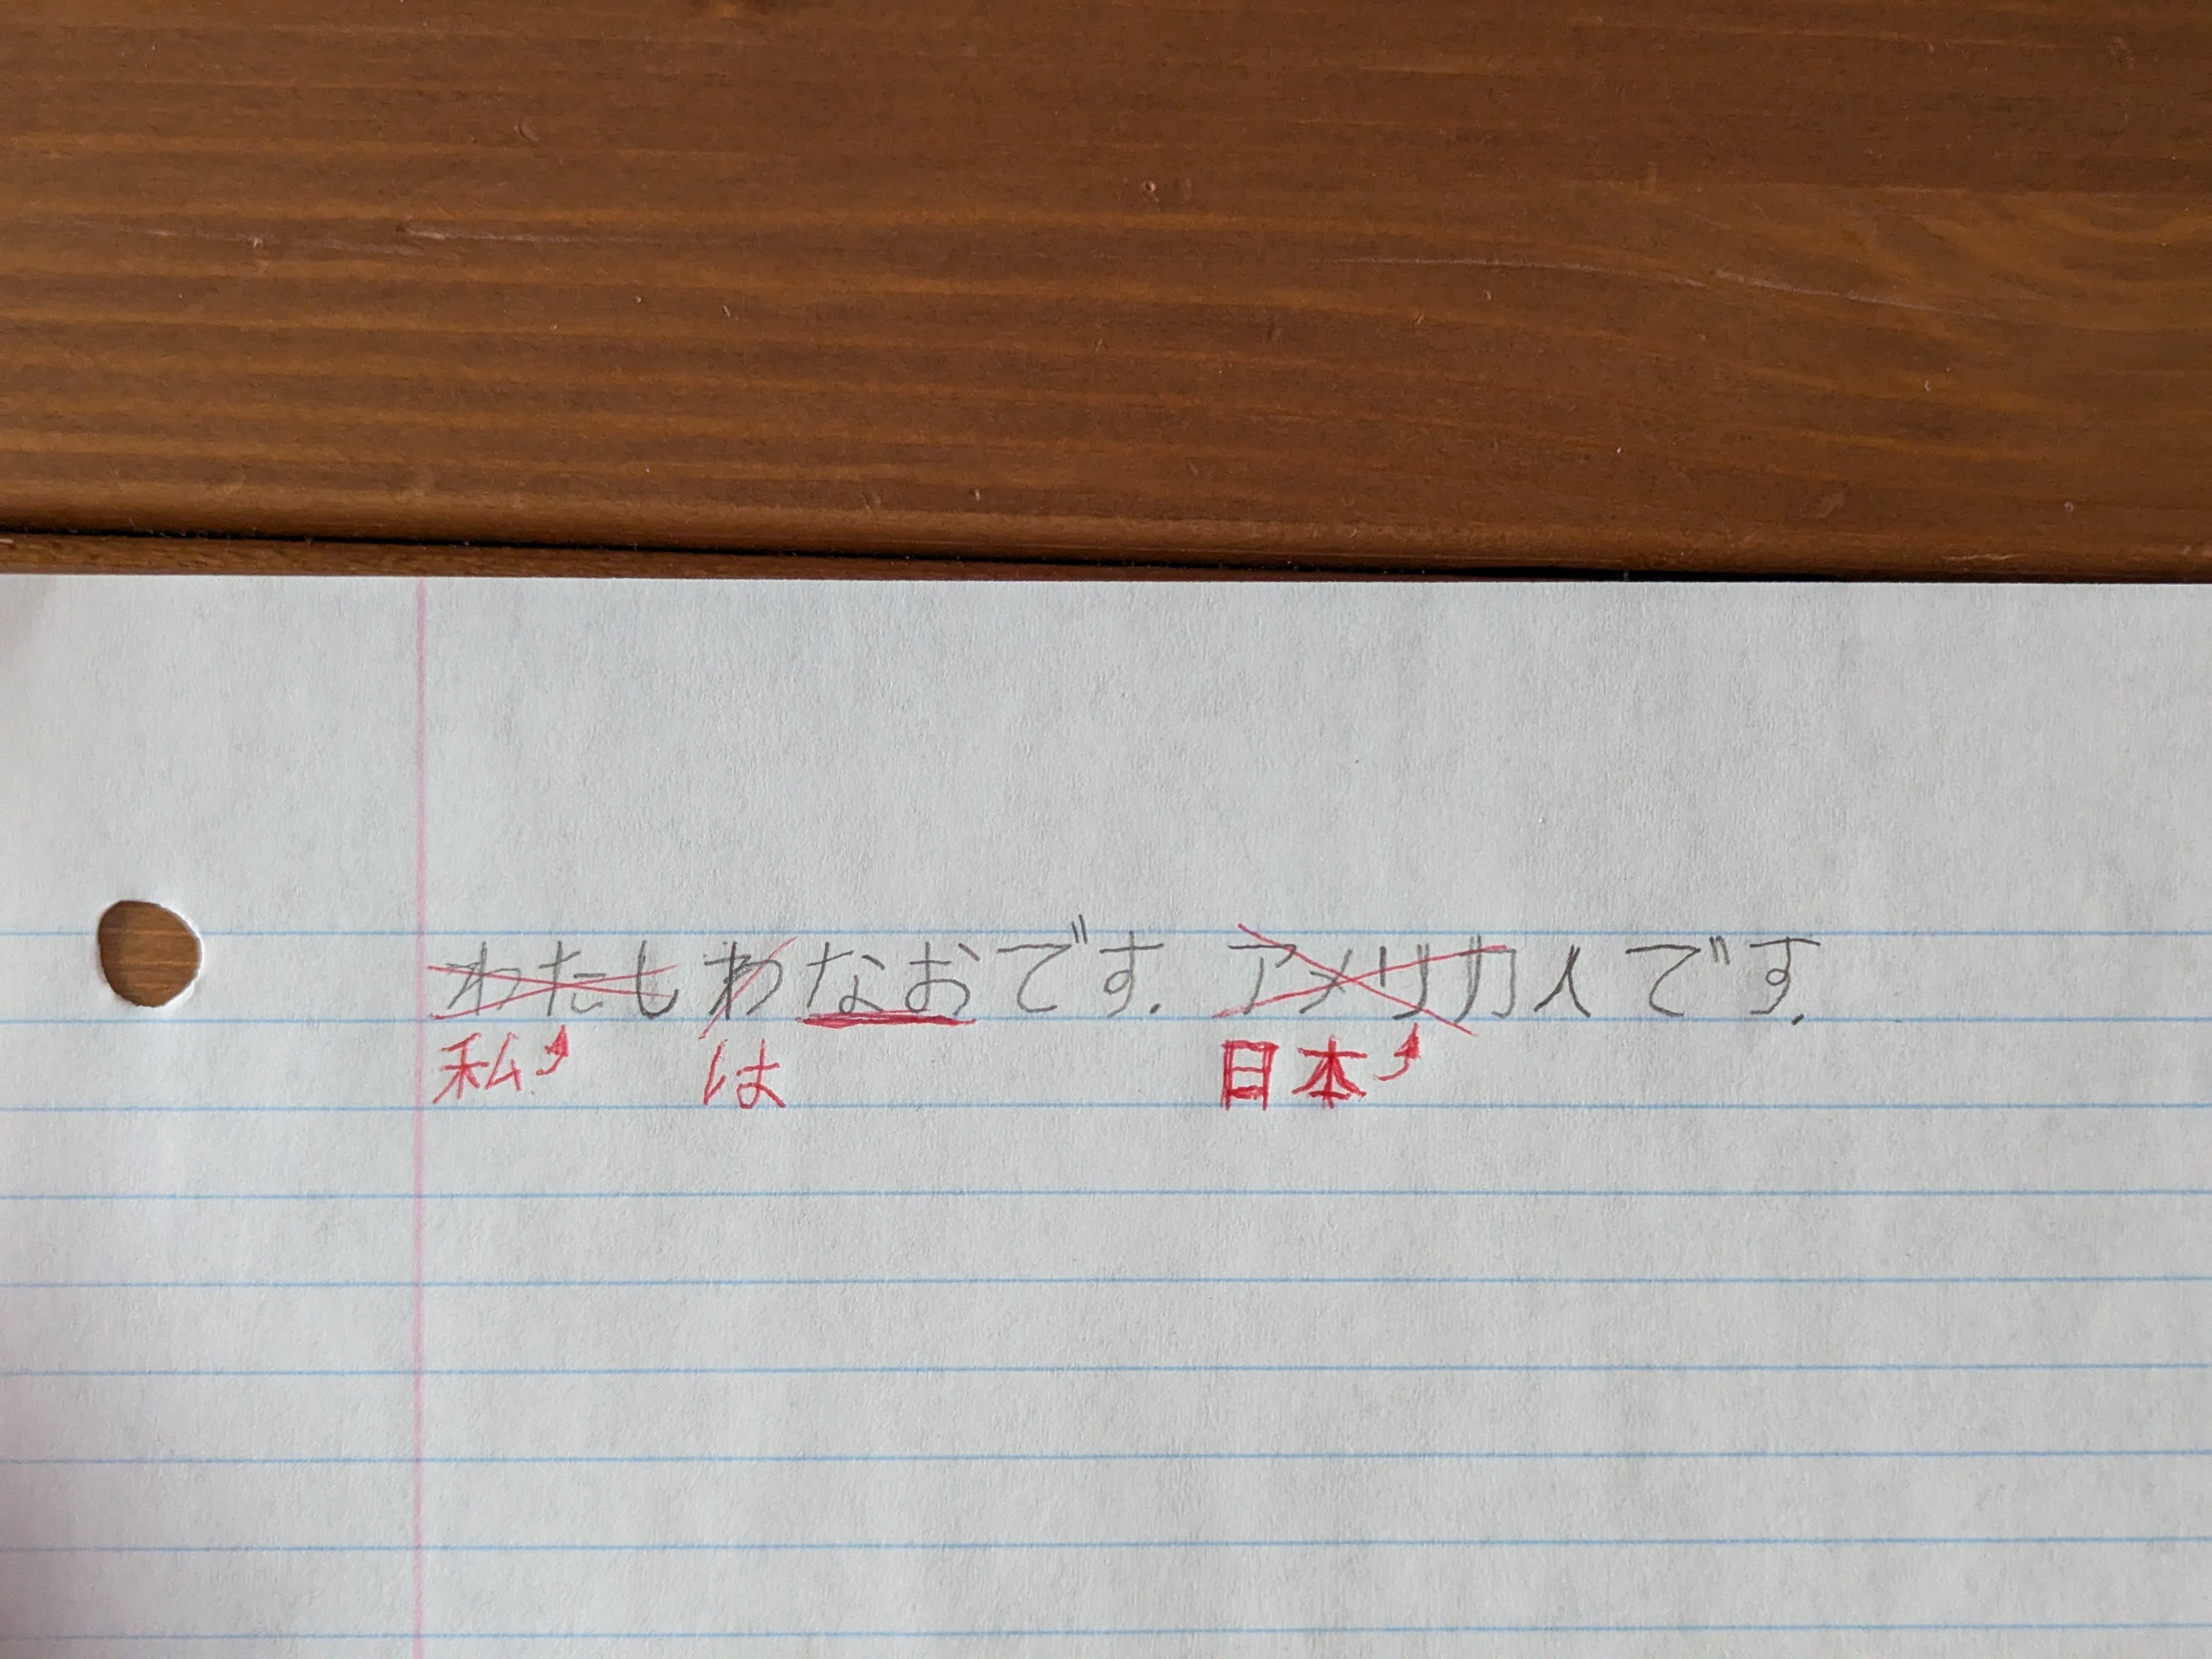 わたしわなおです. アメリカ人です.
私 は 日本